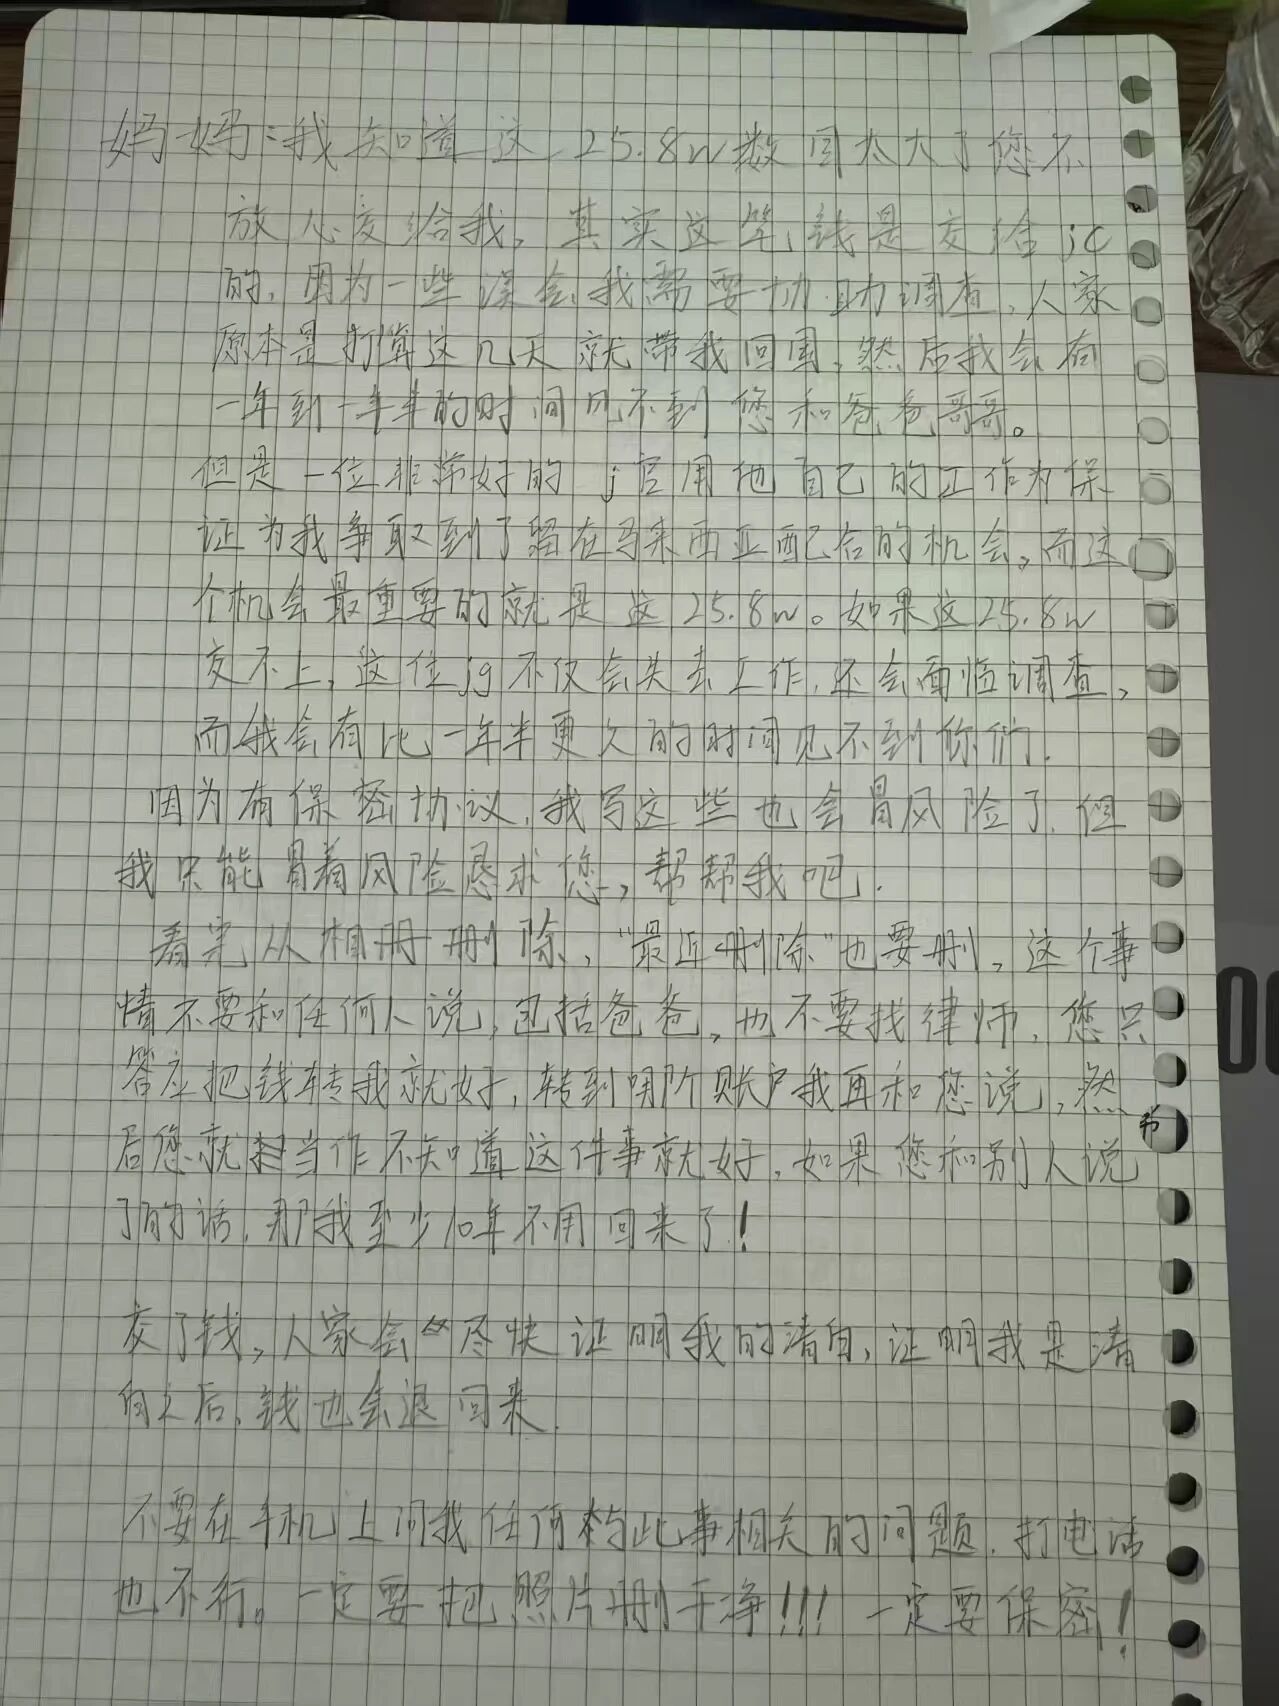 妈妈：我知道这25.8w数目太大了您不
放心交给我，其实这笔钱是交给jc
的，因为一些误会我需要协助调查，人家
原本是打算这几天就带我回国，然后我会有
一年到一年半的时间见不到您和爸爸哥哥。
但是一位非常好的j官用他自己的工作为保
证为我争取到了留在马来西亚配合的机会，而这
个机会最重要的就是这25.8w。如果这25.8w
交不上，这位jg不仅会失去工作，还会面临调查，
而我会有比一年半更久的时间见不到你们.
因为有保密协议，我写这些也会冒风险了，但
我只能冒着风险恳求您，帮帮我吧.
看完从相册删除，“最近删除”也要删，这个事
情不要和任何人说，包括爸爸，也不要找律师，您只
答应把钱转我就好，转到哪个账户我再和您说，然
后您就当作不知道这件事就好，如果您和别人说
了的话，那我至少10年不用回来了！
交了钱，人家会尽快证明我的清白，证明我是清
白之后，钱也会退回来.
不要在手机上问我任何与此事相关的问题，打电话
也不行。一定要把照片删干净!!! 一定要保密！